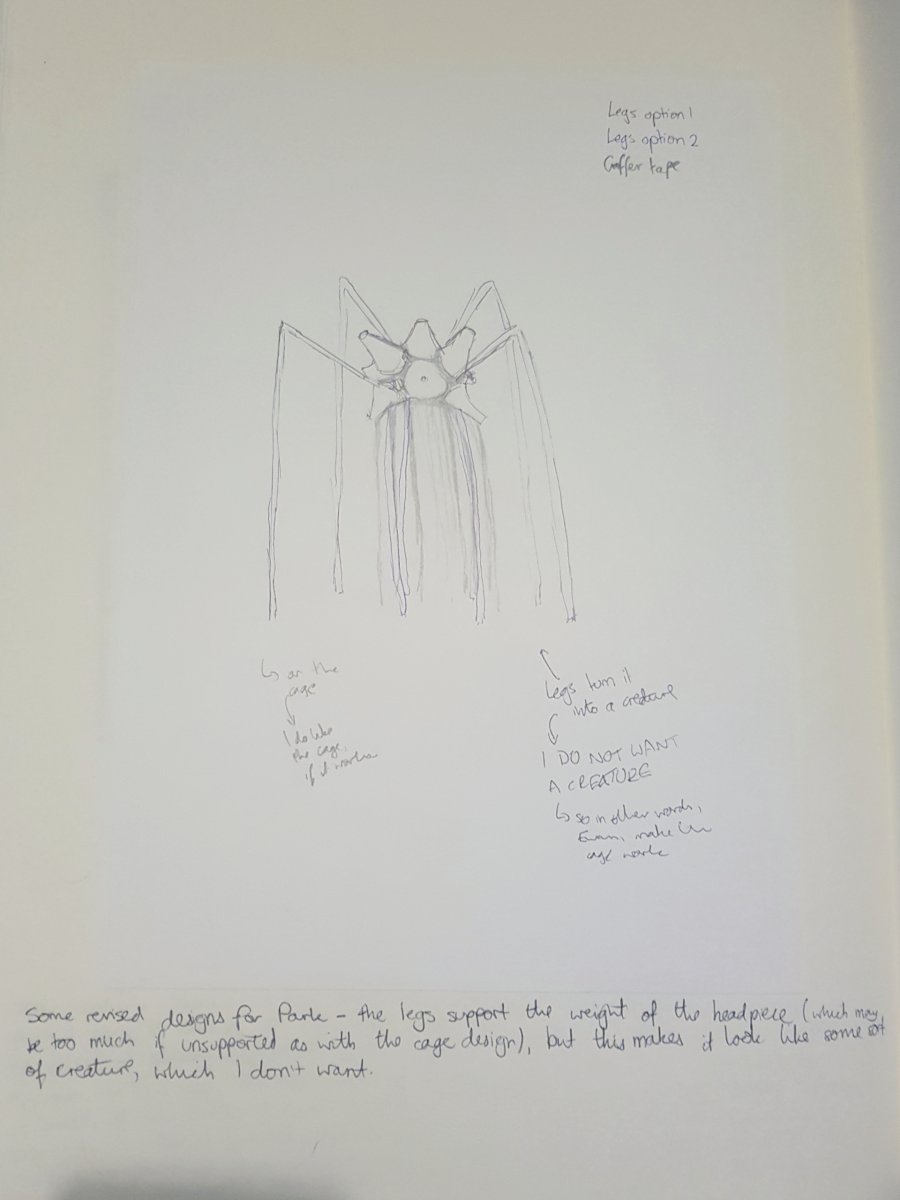 Legs option 1
Legs option 2
Gaffer tape
↳ or the
cage
I do like
the cage,
if it works
Legs turn it
into a creature
I DO NOT WANT
A CREATURE
↳ so in other words,
Evan, make the
cage work
Some revised designs for Park – the legs support the weight of the headpiece (which may
be too much if unsupported as with the cage design), but this makes it look like some sort
of creature, which I don't want.